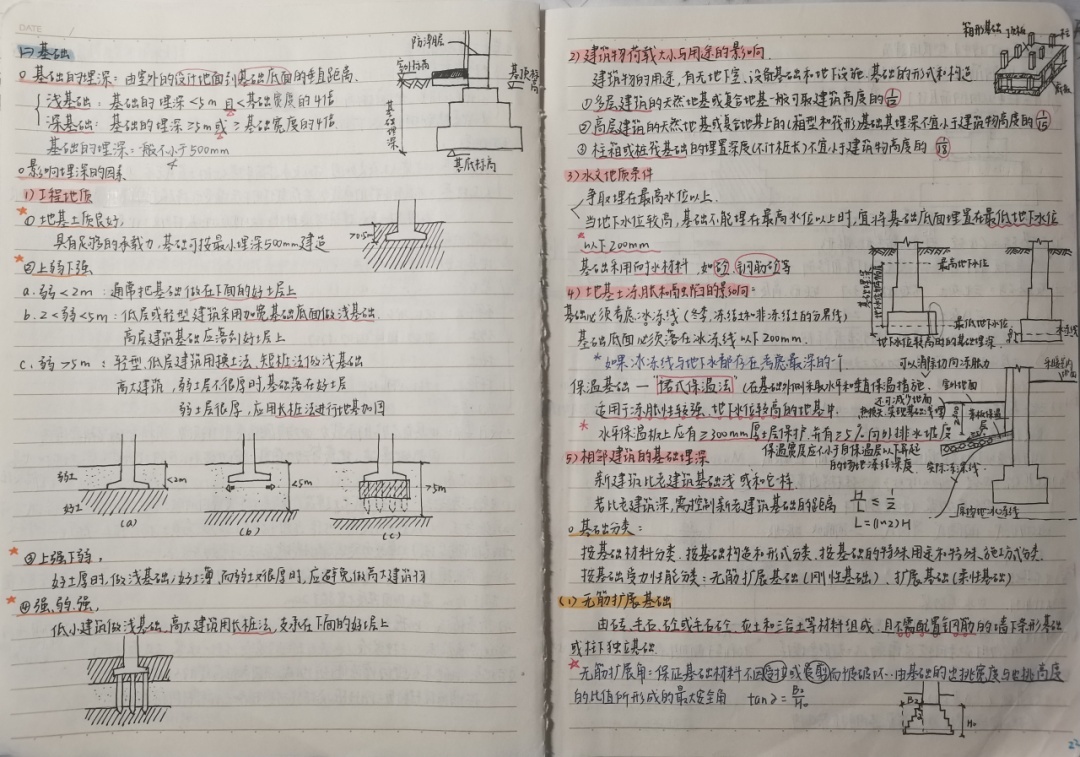 DATE
(一) 基础
○ 基础的埋深：由室外的设计地面到基础底面的垂直距离.
浅基础：基础的埋深<5m 且<基础宽度的4倍
深基础：基础的埋深≥5m或≥基础宽度的4倍
基础的埋深一般不小于500mm
防潮层
室外标高
基顶标高
基础埋深
基底标高
○ 影响埋深的因素
1) 工程地质
① 地基土质良好,
具有足够的承载力,基础可按最小埋深500mm建造
>0.5m
②上弱下强
a.弱<2m：通常把基础做在下面的好土层上
b.2<弱<5m：低层或轻型建筑采用加宽基础底面做浅基础.
高层建筑基础应落到好土层上
c.弱>5m：轻型,低层建筑用换土法,短桩法做浅基础
高大建筑,弱土层不很厚时,基础落在好土层
弱土层很厚,应用长桩法进行地基加固
弱土
好土
<2m
(a)
<5m
(b)
>5m
(c)
③上强下弱,
好土厚时,做浅基础;好土薄,而弱土又很厚时,应避免做高大建筑物
④强.弱.强,
低小建筑做浅基础,高大建筑用长桩法,支承在下面的好层上
箱形基础
2) 建筑物荷载大小与用途的影响
建筑物的用途,有无地下室,设备基础和地下设施.基础的形式和构造
①多层建筑的天然地基或复合地基一般可取建筑高度的1/10
②高层建筑的天然地基或复合地基上的(箱型和筏形基础其埋深不宜小于建筑物高度的1/15
③ 桩箱或桩筏基础的埋置深度(不计桩长)不宜小于建筑物高度的 1/18
3) 水文地质条件
争取埋在最高水位以上.
当地下水位较高,基础不能埋在最高水位以上时,宜将基础底面埋置在最低地下水位
以下200mm
基础采用耐水材料,如砼,钢筋砼等
最高地下水位
最低地下水位
地下水位较高时的基础埋深
冰冻线
4) 地基土冻胀和高出陷的影响：
基础必须考虑冰冻线 (冬季,冻结土和非冻结土的分界线)
基础底面必须落在冰冻线以下200mm.
*如果冰冻线与地下水都存在考虑最深的一个
可以消除切向冻胀力
保温基础—"堵式保温法" (在基础外侧采取水平和垂直保温措施.
还可减少地面
室外地面
适用于冻胀性较强,地下水位较高的地基中.
水平保温板上应有≥300mm厚土层保护.并有≥5%向外排水坡度
保温宽度应不小于自保温层以下算起
的场地冻结深度
实际冻深线
原场地冰冻线
5) 相邻建筑的基础埋深
新建筑比老建筑基础浅 或和它一样
若比老建筑深,需控制新老建筑基础的距离 H/L ≤ 1/2
L=(1~2)H
○ 基础分类：
按基础材料分类.按基础构造和形式分类.按基础的特殊用途和特殊施工方式分类.
按基础受力性能分类：无筋扩展基础(刚性基础)、扩展基础(柔性基础)
(1) 无筋扩展基础
由砖.毛石.砼或毛石砼.灰土和三合土等材料组成.且不需配置钢筋的墙下条形基础
或柱下独立基础
无筋扩展角：保证基础材料不因受拉或受剪而被破坏.由基础的出挑宽度与出挑高度
的比值所形成的最大安全角 tanα=B₂/H₀
B₂
H₀